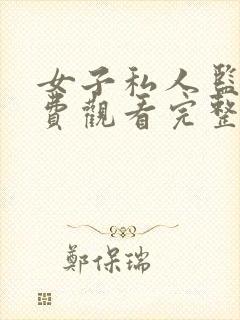 女子私人監
費觀看完整
鄭保瑞